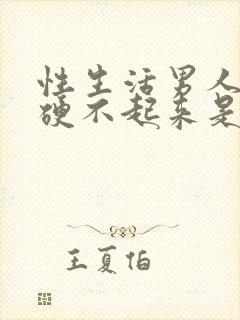 性生活男人
硬不起来是
王夏伯